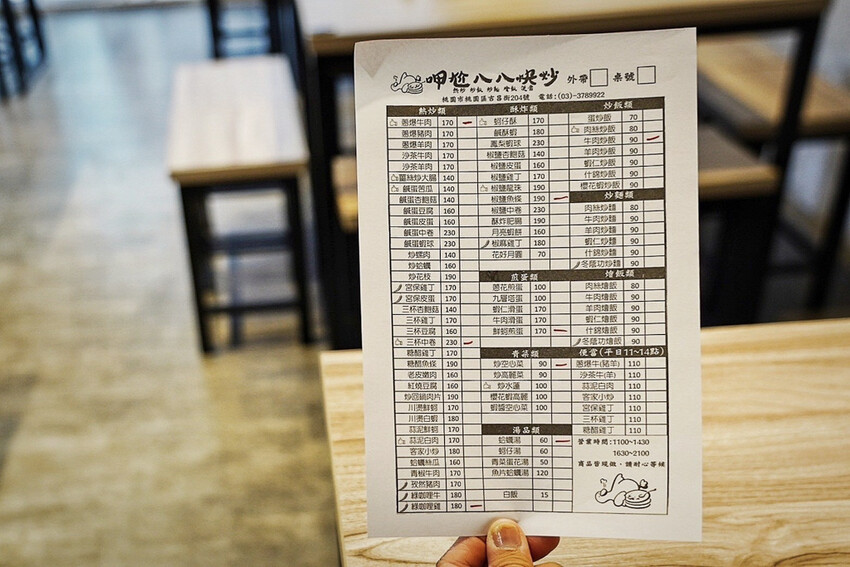 呷尬八八快炒
熱炒 炒飯 炒麵 燴飯 泡麵
外帶 桌號
桃園市桃園區吉昌街204號 電話:(03)-3789922
熱炒類
蔥爆牛肉 170
蔥爆豬肉 170
蔥爆羊肉 170
沙茶牛肉 170
沙茶羊肉 170
薑絲炒大腸 140
鹹蛋苦瓜 140
鹹蛋杏鮑菇 140
鹹蛋豆腐 160
鹹蛋皮蛋 160
鹹蛋中卷 230
鹹蛋蝦球 230
炒螺肉 140
炒蛤蠣 160
炒花枝 190
宮保雞丁 170
宮保皮蛋 170
三杯杏鮑菇 140
三杯雞丁 170
三杯豆腐 160
三杯中卷 230
糖醋雞丁 170
糖醋魚條 190
老皮嫩肉 160
紅燒豆腐 160
炒回鍋肉片 190
川燙鮮蚵 170
川燙白蝦 180
蒜泥鮮蚵 170
蒜泥白肉 170
客家小炒 160
蛤蠣絲瓜 160
青椒牛肉 170
孜然豬肉 170
綠咖哩牛 180
綠咖哩雞 180
酥炸類
蚵仔酥 170
鹹酥蝦 180
鳳梨蝦球 230
椒鹽杏鮑菇 140
椒鹽皮蛋 160
椒鹽雞丁 170
椒鹽龍珠 190
椒鹽魚條 190
椒鹽中卷 230
酥炸肥腸 190
月亮蝦餅 160
椒麻雞丁 180
花好月圓 70
煎蛋類
蔥花煎蛋 100
九層塔蛋 100
蝦仁滑蛋 170
牛肉滑蛋 170
鮮蚵煎蛋 170
青菜類
炒空心菜 90
炒高麗菜 90
炒水蓮 100
櫻花蝦高麗 100
蝦醬空心菜 100
湯品類
蛤蠣湯 60
蚵仔湯 60
青菜蛋花湯 50
魚片蛤蠣湯 120
白飯 15
炒飯類
蛋炒飯 70
肉絲炒飯 80
牛肉炒飯 90
羊肉炒飯 90
蝦仁炒飯 90
什錦炒飯 90
櫻花蝦炒飯 90
炒麵類
肉絲炒麵 80
牛肉炒麵 90
羊肉炒麵 90
蝦仁炒麵 90
什錦炒麵 90
冬蔭功炒麵 90
燴飯類
肉絲燴飯 80
牛肉燴飯 90
羊肉燴飯 90
蝦仁燴飯 90
什錦燴飯 90
冬蔭功燴飯 90
便當(平日11~14點)
蔥爆牛(豬羊) 110
沙茶牛(羊) 110
蒜泥白肉 110
客家小炒 110
宮保雞丁 110
三杯雞丁 110
糖醋雞丁 110
營業時間:1100~1430
1630~2100
商品皆現做，請耐心等候